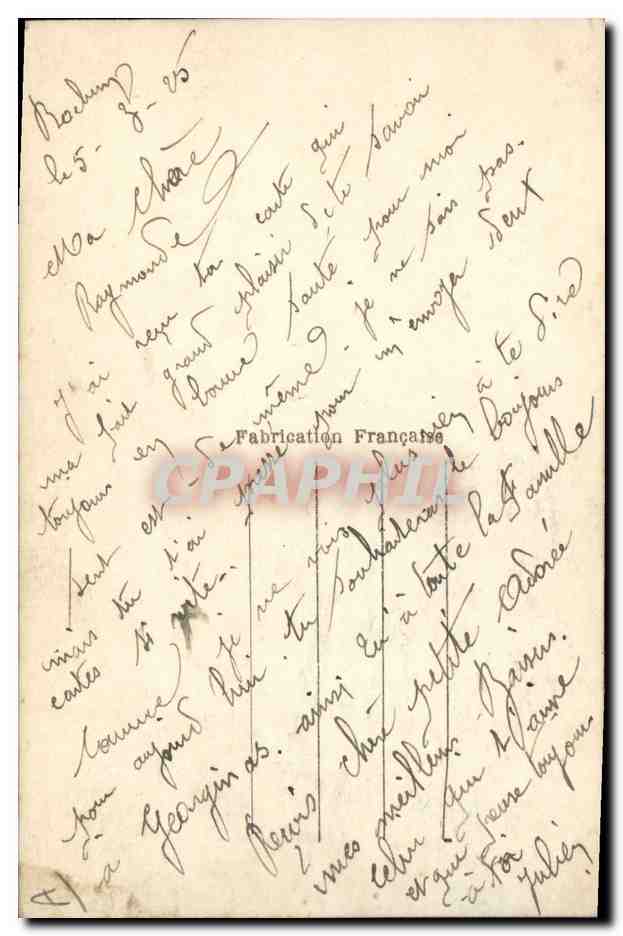 le 5-3-25
Ma chère
Raymonde
j'ai reçu ta carte qui
m'a fait grand plaisir d'été savoir
toujours en bonne santé pour moi
sent est de même. je ne sais pas.
mais tu t'ai pressé pour m'envoyer sent
cartes si vite.
Comme je ne vois plus rien à te dire
pour aujourd hui. tu souhaiteras le bonjours
à Georginas. ainsi qu'à toute la famille
Reçois chère petite Adorée
mes meilleurs Baisers.
celui qui t'aime
et qui pense toujours
à toi
Julien
Fabrication Française
CPAPHIL